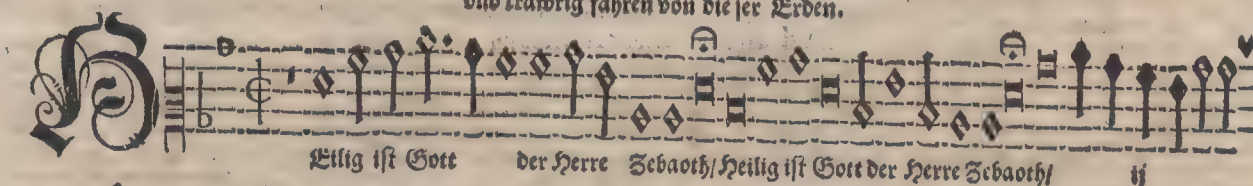 vnd trawrig fahren von dieser Erden.
HEilig ist Gott der Herre Zebaoth/ Heilig ist Gott der Herre Zebaoth/ ij